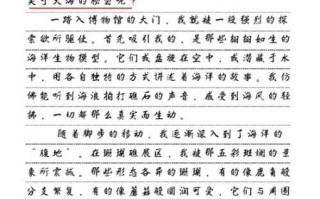 关于大海的秘密呢？
一踏入博物馆的大门，我就被一股强烈的探
索欲所驱使。首先吸引我的，是那些栩栩如生的
海洋生物模型。它们或盘旋在空中，或潜藏于水
中，用各自独特的方式讲述着海洋的故事。我仿
佛能听到海浪拍打礁石的声音，感受到海风的轻
拂，一切都那么真实而生动。
随着脚步的移动，我逐渐深入到了海洋的
“腹地”。在珊瑚礁展区，我被那五彩斑斓的景
象所震撼。那些形态各异的珊瑚，有的像鹿角般
分支繁复，有的像蘑菇般圆润可爱，它们与周围